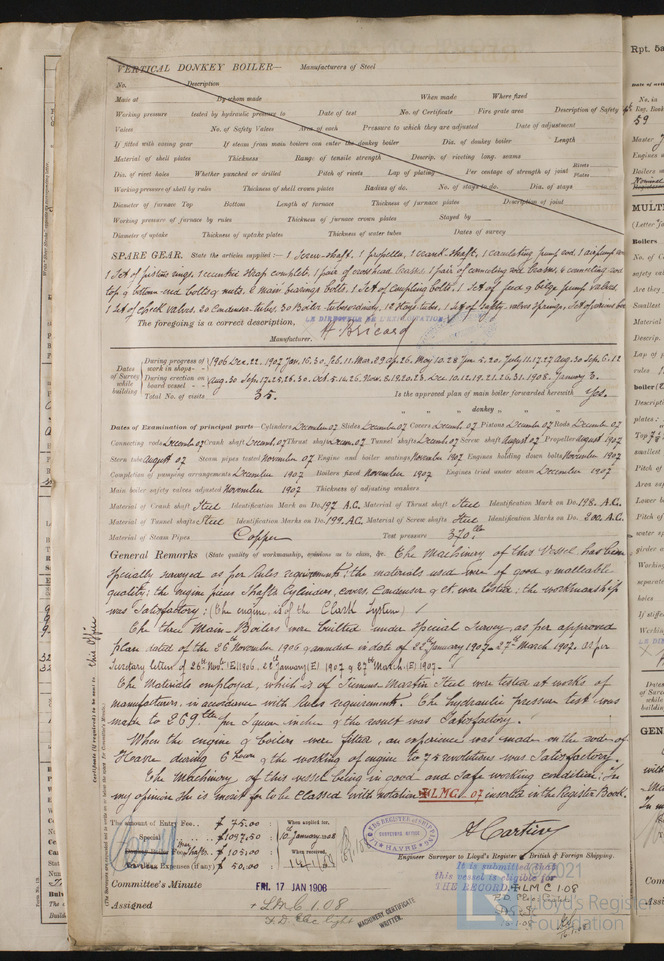 VERTICAL DONKEY BOILER— Manufacturers of Steel
No. Description
Made at By whom made When made Where fixed
Working pressure tested by hydraulic pressure to Date of test No. of Certificate Fire grate area Description of Safety
Valves No. of Safety Valves Area of each Pressure to which they are adjusted Date of adjustment
If fitted with easing gear If steam from main boilers can enter the donkey boiler Dia. of donkey boiler Length
Material of shell plates Thickness Range of tensile strength Descrip. of riveting long. seams
Dia. of rivet holes Whether punched or drilled Pitch of rivets Lap of plating Per centage of strength of joint Rivets Plates
Working pressure of shell by rules Thickness of shell crown plates Radius of do. No. of stays to do. Dia. of stays
Diameter of furnace Top Bottom Length of furnace Thickness of furnace plates Description of joint
Working pressure of furnace by rules Thickness of furnace crown plates Stayed by
Diameter of uptake Thickness of uptake plates Thickness of water tubes Dates of survey
SPARE GEAR. State the articles supplied:— 1 Screw-shaft, 1 propeller, 1 crank shaft, 1 circulating pump rod, 1 air pump
1 Set of piston rings, 1 eccentric strap complete, 1 pair of crosshead brasses, 1 pair of connecting rod brasses, 4 connecting rod
top & bottom end bolts & nuts, 2 main bearings bolts, 1 Set of coupling bolts, 1 Set of feed & bilge pump valves
1 Set of check valves, 20 Condenser tubes, 30 Boiler tubes, 12 Stays tubes, 1 Set of safety-valves springs,
The foregoing is a correct description,
LE DIRECTEUR DE L'EXPLOITATION
Manufacturer.
Dates of Survey while building
During progress of work in shops- - 1906 Dec. 22, 1907 Jan. 16, 30, feb. 11, Mar. 29, ap. 26, May 10. 28 Jun 5. 20, July 11. 17. 27 Aug. 30 Sep. 6. 12
During erection on board vessel - - - Aug. 30 Sep. 17. 25. 26. 30, Oct. 5. 14. 26, Nov. 8. 18. 20. 23, Dec. 10. 12. 19. 21. 26. 31. 1908. January 3.
Total No. of visits 35. Is the approved plan of main boiler forwarded herewith Yes.
" " " donkey " " "
Dates of Examination of principal parts—Cylinders December 07 Slides December 07 Covers December 07 Pistons December 07 Rods December 07
Connecting rods December 07 Crank shaft December 07 Thrust shaft December 07 Tunnel shafts December 07 Screw shaft August 07 Propeller August 1907
Stern tube August 07 Steam pipes tested November 07 Engine and boiler seatings November 1907 Engines holding down bolts November 1907
Completion of pumping arrangements December 1907 Boilers fixed November 1907 Engines tried under steam December 1907
Main boiler safety valves adjusted November 1907 Thickness of adjusting washers
Material of Crank shaft Steel Identification Mark on Do. 197 A.C. Material of Thrust shaft Steel Identification Mark on Do. 198. A.C.
Material of Tunnel shafts Steel Identification Marks on Do. 199. A.C. Material of Screw shafts Steel Identification Marks on Do. 200. A.C.
Material of Steam Pipes Copper Test pressure 370 lbs
General Remarks (State quality of workmanship, opinions as to class, &c. The Machinery of this Vessel has been
specially surveyed as per Rules requirements; the materials used were of good & malleable
quality; the engine pieces Shafts Cylinders, covers Condenser & ct were tested; the workmanship
was Satisfactory; (The engine is of the Clark System)
The three Main-Boilers were builted under Special Survey, as per approved
plan dated of the 26th November 1906 & amended in date of 22th January 1907 - 27th March 1907. as per
Secretary letters of 26th Novr. (E) 1906. 22th January (E) 1907 & 27th March (E) 1907.-
The Materials employed, which is of Siemens-Martin Steel were tested at works of
manufacturers, in accordance with Rules requirement. The hydraulic pressure test was
made to 369 lbs per square inche & the result was Satisfactory.
When the engine & boilers were fitted, an experience was made on the rode of
Havre, during 6 hours & the working of engine to 75 revolutions was Satisfactory.
The Machinery of this vessel being in good and Safe working condition; In
my opinion She is merit for to be Classed with notation ✠LMC 1. 07 inserted in the Register Book.
Certificate (if required) to be sent to this Office
The amount of Entry Fee.. £ 75.00 When applied for,
Special £ 1097.50 10 January 1908
Fee Shafts... £ 105.00 When received,
Expenses (if any) £ 50.00 14/1/08
LLOYD'S REGISTER OF SHIPPING SURVEYORS OFFICE HAVRE
Engineer Surveyor to Lloyd's Register of British & Foreign Shipping.
Committee's Minute FRI. 17 JAN 1908
It is submitted that
this vessel is eligible for
THE RECORD. ✠LMC 1.08
Assigned + LMC 1.08
F.D. Elec light
MACHINERY CERTIFICATE WRITTEN.
© 2021
Lloyd's Register
Foundation
Rpt. 5a
59
MULT
Boilers
GEN